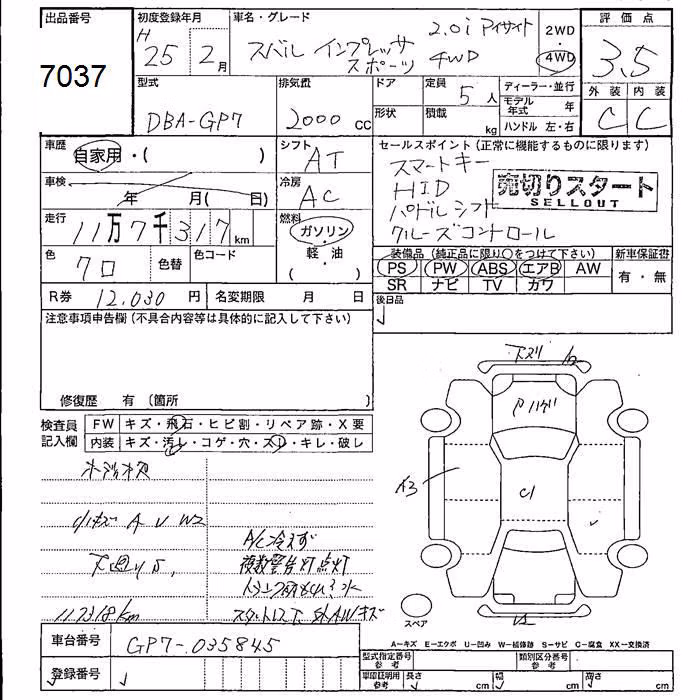 出品番号
7037
初度登録年月
H 25 2月
車名・グレード
スバル インプレッサ 2.0i アイサイト
スポーツ 4WD
2WD
・
4WD
評価点
3.5
外装 内装
C C
型式
DBA-GP7
排気量
2000 cc
ドア
形状
定員 5人
積載 kg
ディーラー・並行
モデル年式 年
ハンドル 左・右
車歴
自家用・( )
車検
年 月( 日)
走行
11万7千317km
色
クロ
色替
色コード
シフト
AT
冷房
AC
燃料
ガソリン・
軽油
( )
R券 12,030円
名変期限 月 日
セールスポイント(正常に機能するものに限ります)
スマートキー
HID
パドルシフト
クルーズコントロール
売切りスタート
SELLOUT
装備品(純正品に限り○をつけて下さい)
PS PW ABS エアB AW
SR ナビ TV カワ
新車保証書
有・無
後日品
注意事項申告欄(不具合内容等は具体的に記入して下さい)
修復歴 有(箇所 )
検査員記入欄
FW キズ・飛石・ヒビ割・リペア跡・X要
内装 キズ・汚レ・コゲ・穴・スレ・キレ・破レ
A U W2
A/C冷えず
複数警告灯点灯
117318km
キズ
下ズリ
Pハゲ
A3
C1
スペア
A-キズ E-エクボ U-凹み W-補修跡 S-サビ C-腐食 XX-交換済
車台番号 GP7-035845
登録番号
型式指定番号 参考
類別区分番号 参考
車印証明用 参考 長さ cm 幅 cm 高さ cm